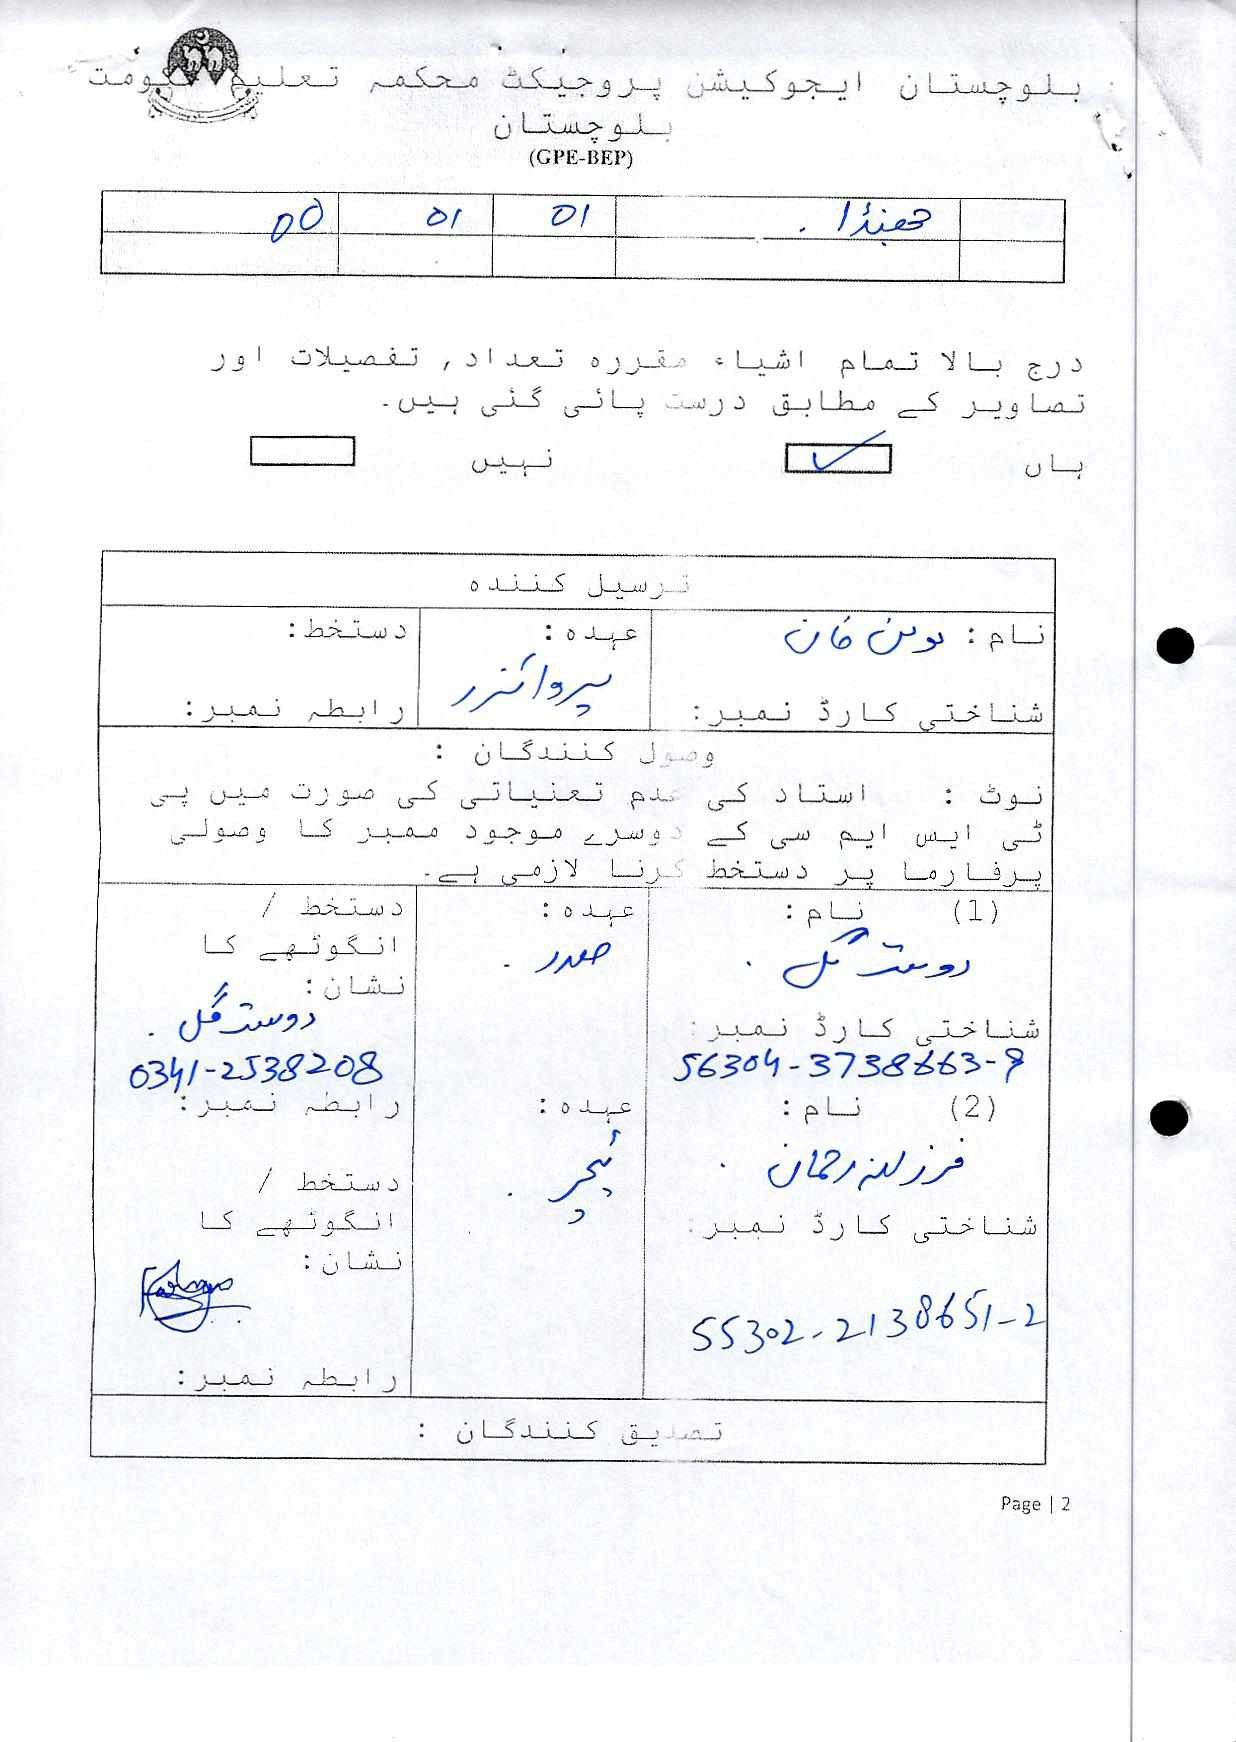 بلوچستان ایجوکیشن پروجیکٹ محکمہ تعلیم حکومت
بلوچستان
(GPE-BEP)
جھنڈا . 01 01 00
درج بالا تمام اشیاء مقررہ تعداد, تفصیلات اور
تصاویر کے مطابق درست پائی گئی ہیں۔
ہاں ✓ نہیں
ترسیل کنندہ
نام: خان عہدہ: دستخط:
سپروائزر
شناختی کارڈ نمبر: رابطہ نمبر:
وصول کنندگان :
نوٹ : استاد کی عدم تعنیاتی کی صورت میں پی
ٹی ایس ایم سی کے دوسرے موجود ممبر کا وصولی
پرفارما پر دستخط کرنا لازمی ہے۔
(1) نام: عہدہ: دستخط /
انگوٹھے کا
دوست گل . صدر .
نشان:
دوست گل .
شناختی کارڈ نمبر:
56304-3738663-9 0341-2538208
(2) نام: عہدہ: رابطہ نمبر:
رحمان . ٹیچر .
دستخط /
شناختی کارڈ نمبر: انگوٹھے کا
نشان:
55302-2138651-2
رابطہ نمبر:
تصدیق کنندگان :
Page | 2